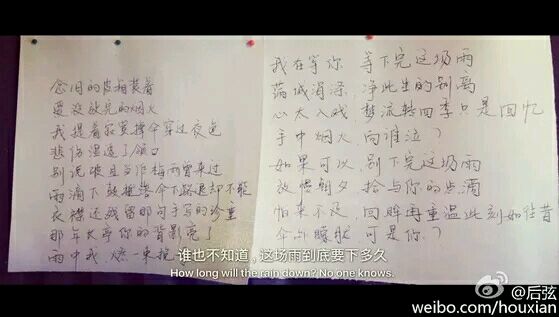 念旧的皮箱装着
还没放完的烟火
我提着寂寞撑伞穿过夜色
悲伤湿透了领口
别说暖且当作梅雨曾来过
雨滴下敲 伞下 退却不能
衣襟还残留那句手写的珍重
那年长亭你的背影亮了
雨中我 燃一束
我在等你 等下完这场雨
落成涓涤 净此生的别离
心太入戏 想流转四季只是回忆
手中烟火 向谁泣
如果可以 别下完这场雨
放慢朝夕 拾与你的点滴
怕来不及 回眸再重温此刻如往昔
伞 朦胧 可是你
谁也不知道，这场雨到底要下多久
How long will the rain down? No one knows.
@后弦
weibo.com/houxian